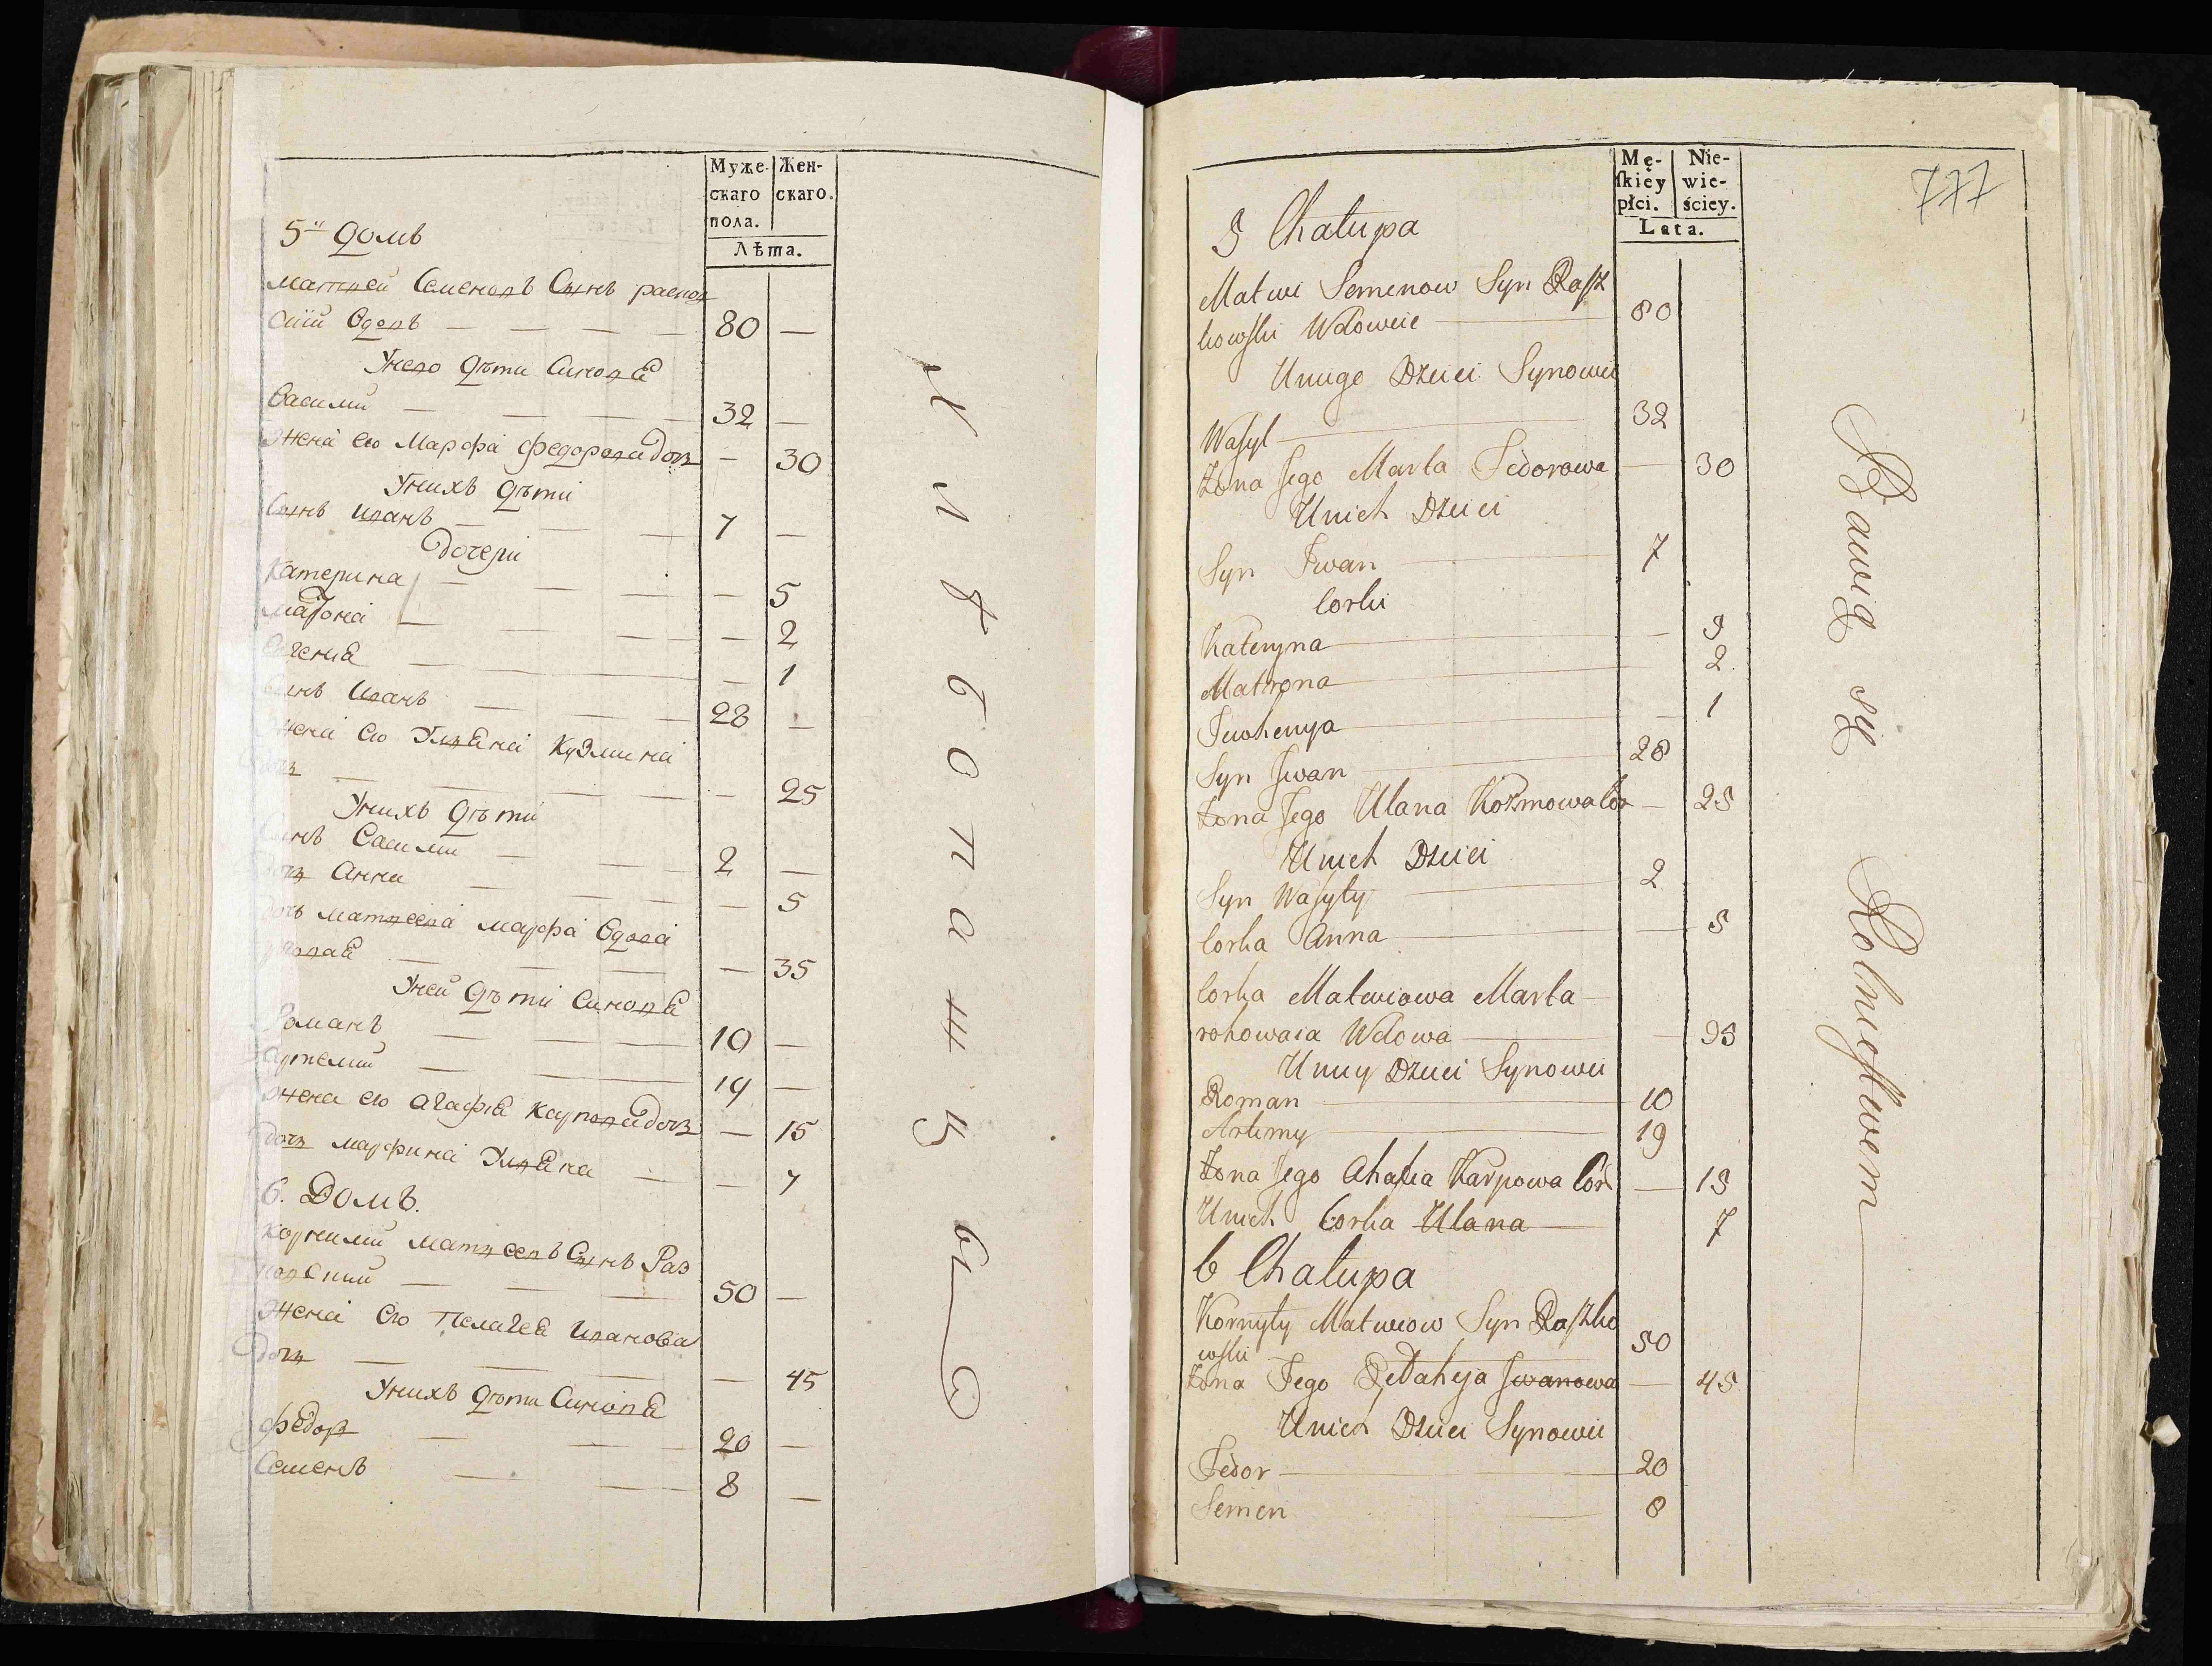 Муже-
скаго
пола.
Жен-
скаго.
Лѣта.
5й домъ
матвей Семеновъ Сынъ распов
ский вдовъ — 80 —
Унево дѣти Синовя
Василий — 32 —
Жена ево Марфа Федорова дочь — 30
Унихъ дѣти
Сынъ иванъ — 7 —
Дочери
Катерина — 5
Матрона — 2
Евгения — 1
Синъ иванъ — 28 —
Жена ево Улвяна Кузмина
дочь — 25
Унихъ дѣти
Синъ Василий — 2 —
Дочь Анна — 5
дочь матвеева марфа вдова
— 35
Уней дѣти Синовя
Романъ — 10 —
Артемий — 19 —
Жена ево Агафия Карпова дочь — 15
дочь марфина Улвяна — 7
6. Домъ.
Корнилий матвеевъ Сынъ Раз
50 —
Жена ево Пелагея иванова
дочь — 45
Унихъ дѣти Синовя
Федоръ — 20 —
Семенъ — 8 —
Хлѣбопашцы
Mę-
ſkiéy
płci.
Nie-
wie-
ściey.
Lata.
777
5 Chałupa
Matwi Semenow Syn Raſz
kowſki Wdowiec — 80
Uniego Dzieci Synowie
Waſyl — 32
Żona Jego Marta Fedorowa — 30
Unich Dzieci
Syn Iwan — 7
Corki
Kateryna — 5
Matrona — 2
Jewhenya — 1
Syn Iwan — 28
Żona Jego Ulana Kozmowa Cor — 25
Unich Dzieci
Syn Waſyly — 2
Corka Anna — 5
Corka Matwiowa Marta —
rohowaia Wdowa — 35
Uniey Dzieci Synowie
Roman — 10
Artemy — 19
Żona Jego Ahafia Karpowa Cor — 15
Unich Corka Ulana — 7
6 Chałupa
Kornyły Matwiow Syn Raſzko
wſki — 50
Żona Jego Pelaheja Iwanowa — 45
Unich Dzieci Synowie
Fedor — 20
Semen — 8
Bawią się Rolnictwem